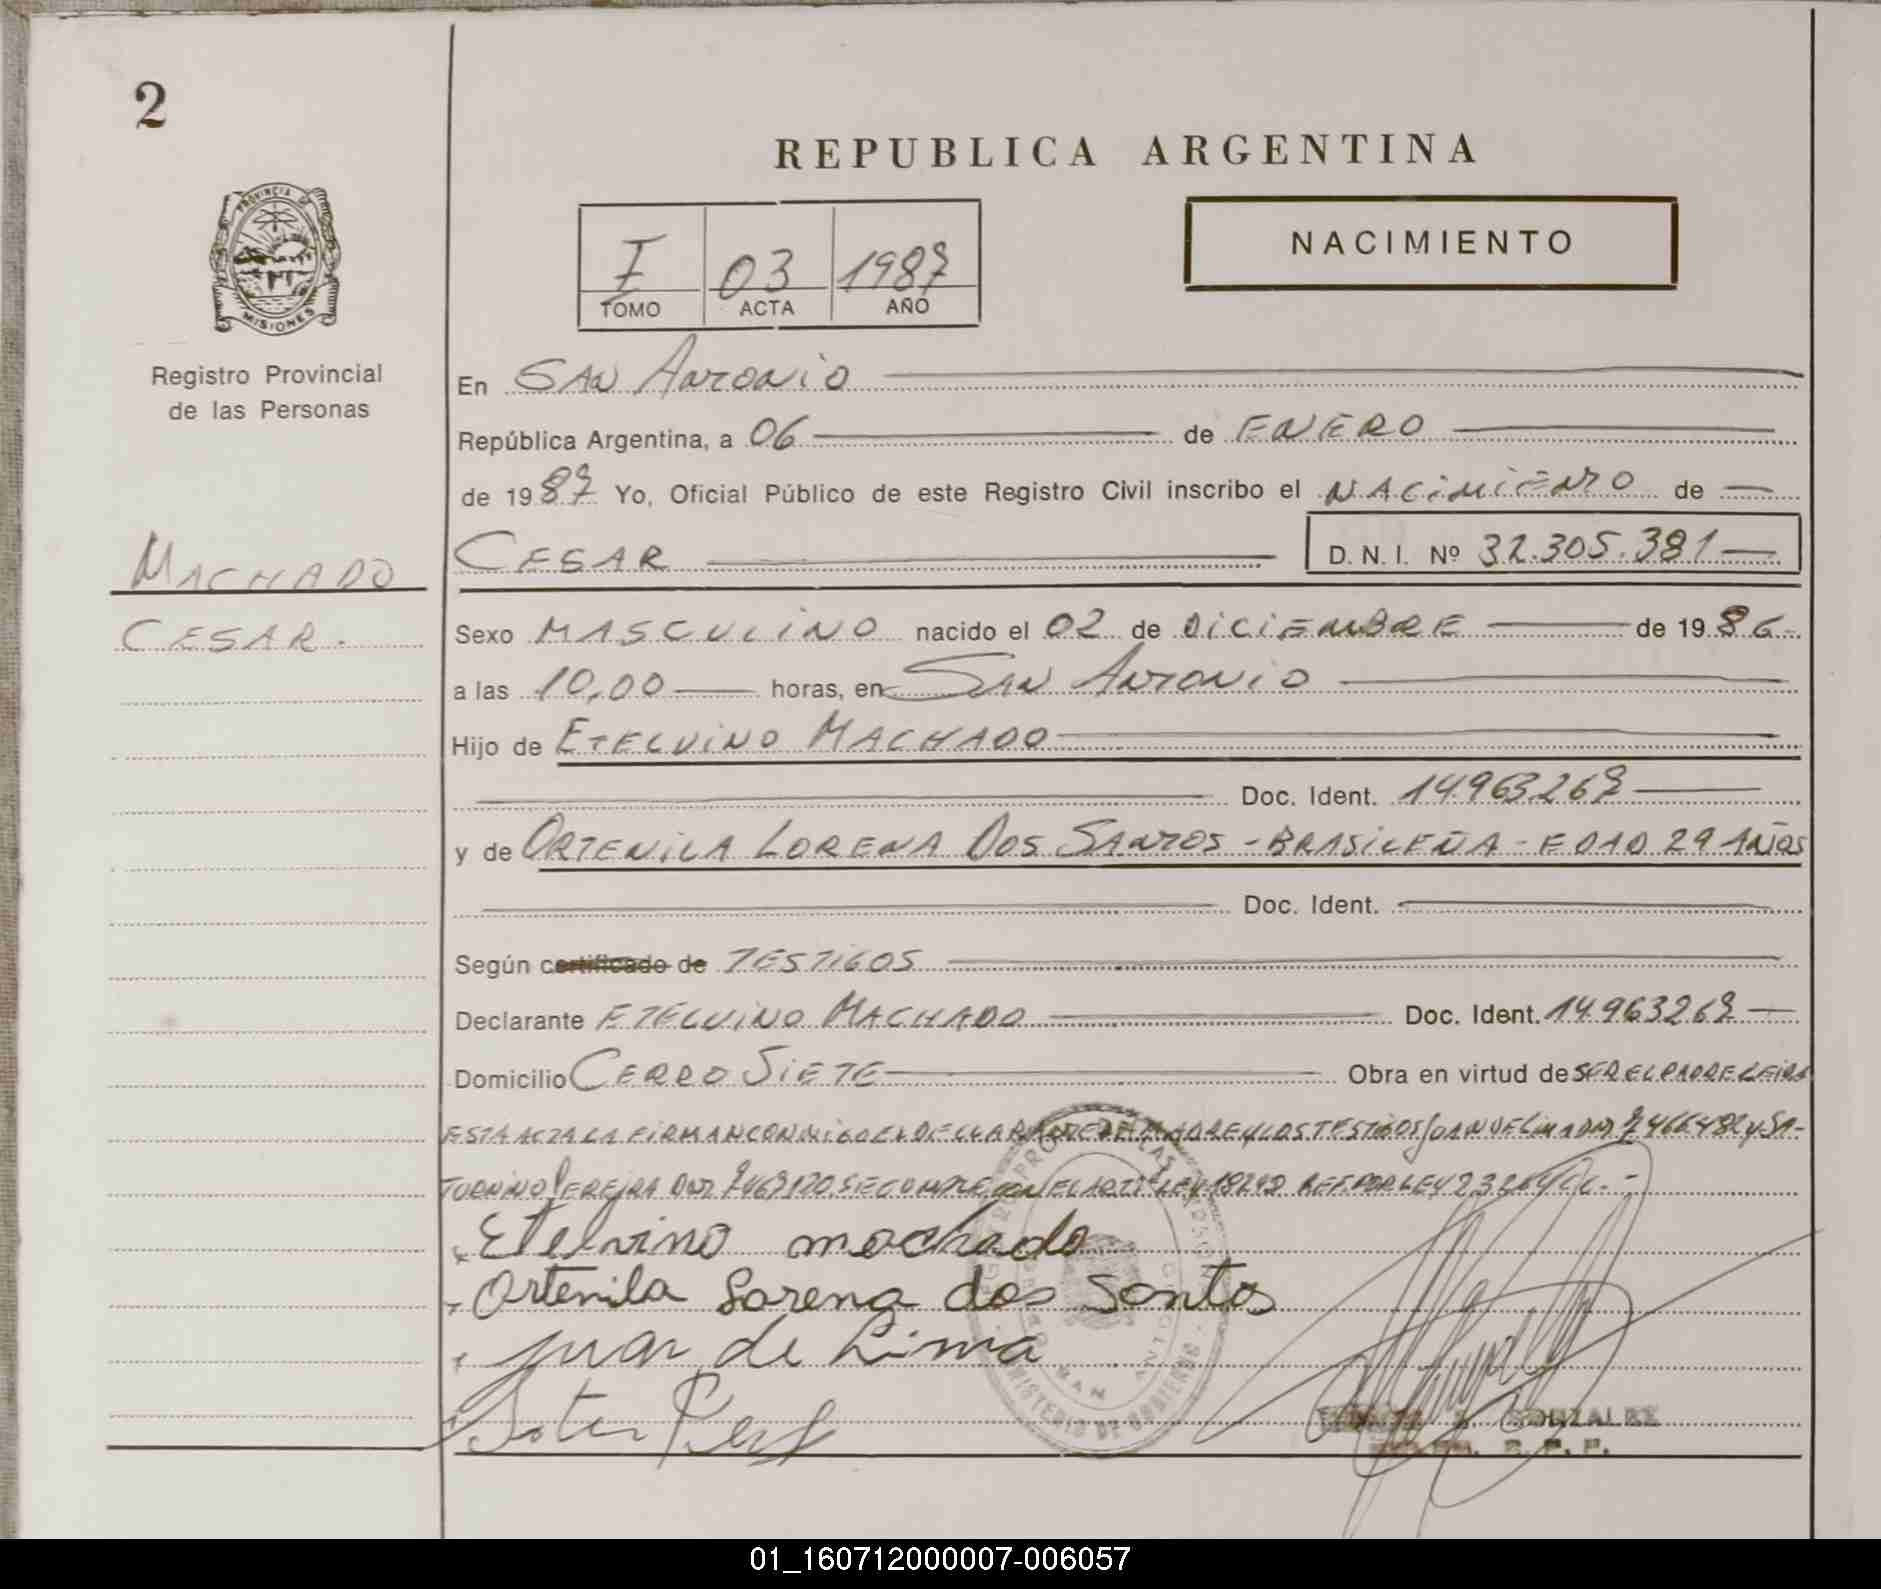 2
REPUBLICA ARGENTINA
PROVINCIA DE
MISIONES
NACIMIENTO
I 03 1987
TOMO ACTA AÑO
Registro Provincial
de las Personas
En SAN ANTONIO
República Argentina, a 06 de ENERO
de 1987 Yo, Oficial Público de este Registro Civil inscribo el NACIMIENTO de
MACHADO
CESAR D. N. I. Nº 32.305.381
CESAR.
Sexo MASCULINO nacido el 02 de DICIEMBRE de 1986
a las 10,00 horas, en SAN ANTONIO
Hijo de ETELVINO MACHADO
Doc. Ident. 14963267
y de ORTENILA LORENA DOS SANTOS - BRASILEÑA - EDAD 29 AÑOS
Doc. Ident.
Según certificado de TESTIGOS
Declarante ETELVINO MACHADO Doc. Ident. 14963267
Domicilio CERRO SIETE Obra en virtud de SER EL PADRE LEIDA
ESTA ACTA LA FIRMAN CONMIGO EL DECLARANTE LA MADRE Y LOS TESTIGOS JUAN DE LIMA DNI 7466482 y SA-
TURNINO PEREIRA DNI 7467170. SE CUMPLE CON EL ART LEY 18248 REF. POR LEY 23264
Etelvino machado
Ortenila Lorena dos Santos
Juan de Lima
MINISTERIO DE GOBIERNO
SAN
GONZALEZ
R. P. P.
01_160712000007-006057